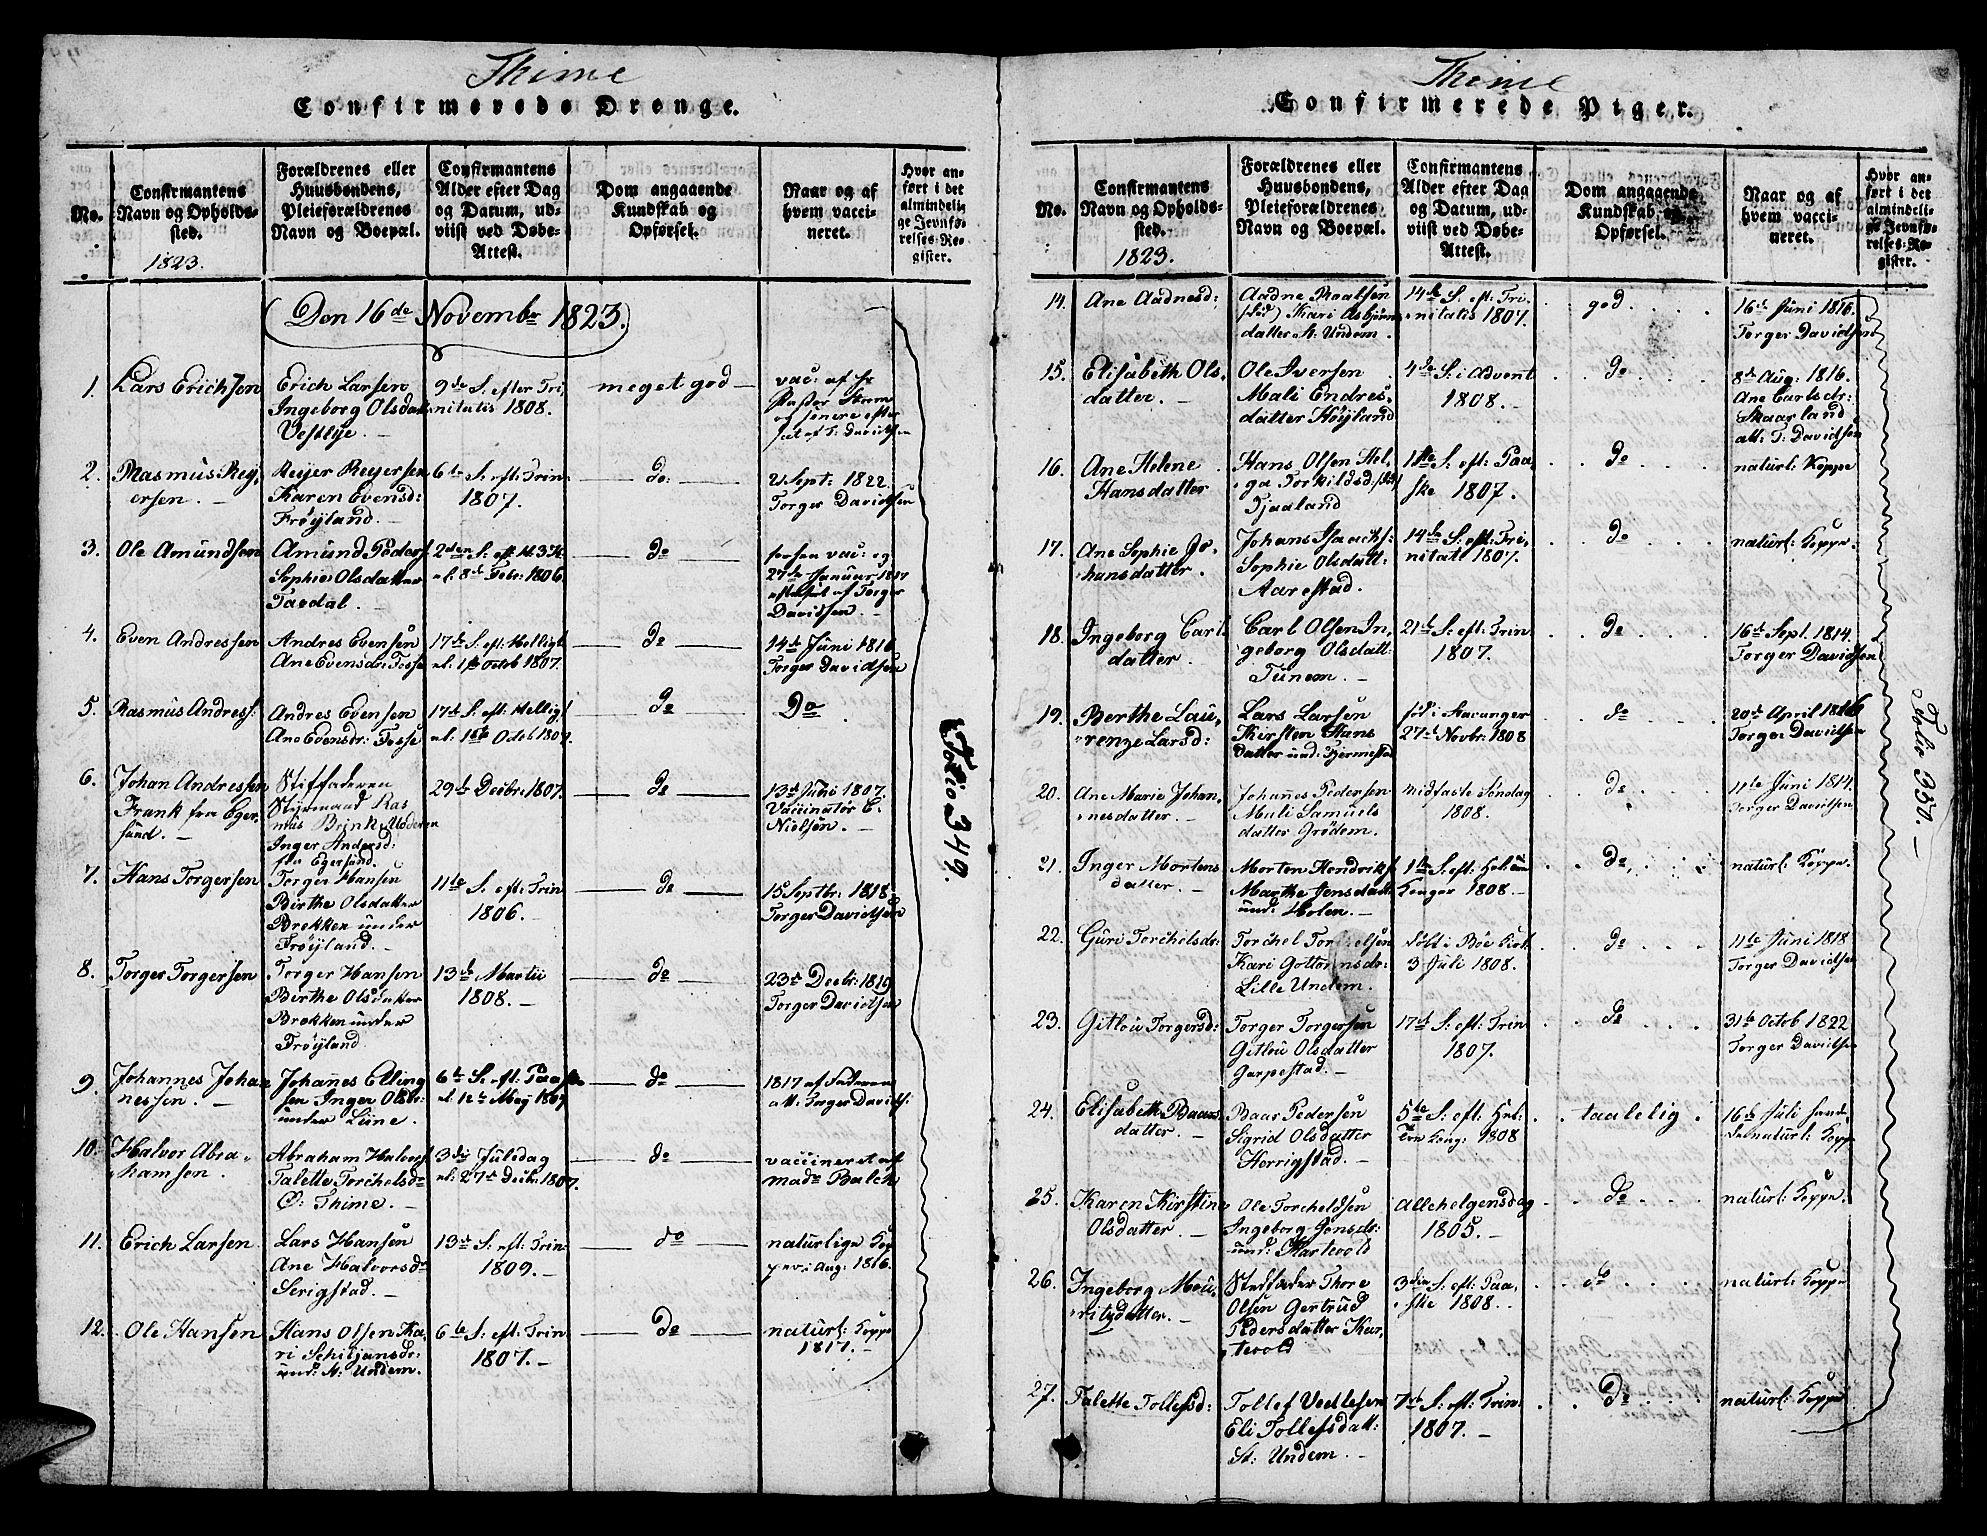 Thime
Confirmerede Drenge.
No.
Confirmantens
Navn og Opholds-
sted.
1823.
Forældrenes eller
Huusbondens,
Pleieforældrenes
Navn og Boepæl.
Confirmantens
Alder efter Dag
og Datum, ud-
viist ved Døbe-
Attest.
Dom angaaende
Kundskab og
Opførsel.
Naar og af
hvem vacci-
neret.
Hvor an-
ført i det
almindeli-
ge Jevnfø-
relses-Re-
gister.
Den 16de Novembr 1823.
1.
Lars Erichsen
Erich Larsen
Ingeborg Olsdatt:
Vestlye.
9de S. efter Tri,
nitatis 1808.
meget god
vac: af
og senere efter
seet af T: Davidsen
2.
Rasmus Rey,
ersen.
Reyer Reyersen
Karen Evensd:
Frøyland.
6te S. eft: Trin
1807.
do
2 Sept: 1822.
Torger Davidsen
3.
Ole Amundsen
Amund Peders:
Sophie Olsdatter
Tasdal.
2den S. eft: H3K
al: 8de Febr: 1806.
do
vac: og
27de Januar 1817
efterseet af Torger
Davidsen.
4.
Even Andressen
Andres Evensen
Ane Evensdr: Fosse
17de S. eft: Helligt
al: 1ste Octob 1807.
do
14de Juni 1816
Torger Davidsen
5.
Rasmus Andress:
Andres Evensen
Ane Evensdr: Fosse
17de S. eft: Helligt
al: 1ste Octob 1807.
do
Do
6.
Johan Andressen
Frank fra Eger,
sund.
Stiffaderen
Styrmand Ras
mus Brink Moderen
Inger Andersd:
fra Egersund.
29de Decbr: 1807.
do
13de Juni 1807.
Vaccinatør C.
Nielsen.
7.
Hans Torgersen
Torger Hansen
Birthe Olsdatter
Brekken under
Frøyland.
11te S. eft: Trin
1806.
do
15 Septbr: 1818.
Torger Davidsen
8.
Torger Torgersen
Torger Hansen
Birthe Olsdatter
Brekken under
Frøyland.
13de Martii
1808.
do
23de Decbr: 1819
Torger Davidsen
9.
Johannes Johan
nessen.
Johanes Elling
sen Inger Olsdr:
under Line.
6te S. eft: Paaske
al: 12te May 1809
do
1817 af Faderen
att: Torger Davids:
10.
Halvor Abra,
hamsen.
Abraham Halvors:
Talette Torchelsdr
Ø: Thime.
3die Juledag
al: 27de Decbr: 1807.
do
vaccineret af
madm Balck
11.
Erich Larsen
Lars Hansen
Ane Halvorsdr
Serigstad.
13de S. eft: Trin
1809.
do
naturlige Kop
per i Aug: 1816.
12.
Ole Hansen
Hans Olsen Ka,
ri Schiljansdr:
und: N: Undem.
6te S: eft: Trin
1807.
do
naturl: Koppe
1817.
Folio 349.
Thime
Confirmerede Piger.
No.
Confirmantens
Navn og Opholds-
sted.
1823.
Forældrenes eller
Huusbondens,
Pleieforældrenes
Navn og Boepæl.
Confirmantens
Alder efter Dag
og Datum, ud-
viist ved Døbe-
Attest.
Dom angaaende
Kundskab og
Opførsel.
Naar og af
hvem vacci-
neret.
Hvor an-
ført i det
almindeli-
ge Jevnfø-
relses-Re-
gister.
14.
Ane Aadnesd:
Aadne Roalsen
Kari Asbjørns
datter N: Undem.
14de S. eft: Tri,
nitatis 1807.
god
16de Juni 1816.
Torger Davidsen
15.
Elisabeth Ols,
datter.
Ole Iversen
Mali Endres,
datter Høyland
4de S: i Advent
1808.
do
8de Aug: 1816.
Ane Carlsdr:
Skaarland
att: T: Davidsen
16.
Ane Helene
Hansdatter
Hans Olsen Hel,
ga Torkildsd:
Tjaaland
1ste S: eft: Paa,
ske 1807.
do
naturl: Koppe
17.
Ane Sophie Jo,
hansdatter.
Johans Isaachs:
Sophie Olsdatt:
Aarestad.
14de S: eft: Tri,
nitati 1807.
do
naturl: Koppe.
18.
Ingeborg Carl
datter.
Carl Olsen In,
geborg Olsdatt:
Tunem.
21de S: eft: Trin
1807.
do
16de Sept. 1814.
Torger Davidsen
19.
Berthe Lau,
renze Larsd:
Lars Larsen
Kirsten Hans
datter und: Hjermestad
fød i Stavanger
27de Novbr: 1808
do
20de April 1816
Torger Davidsen
20.
Ane Marie Johan,
nesdatter.
Johanes Pedersen
Mali Samuels
datter Grødem.
midfaste Søndag
1808.
do
11te Juni 1814.
Torger Davidsen
21.
Inger Mortens
datter.
Morten Hendriks:
Marthe Jensdatt:
und: Holen.
1ste S: eft: Hel:
Konger 1808.
do
naturl: Koppe.
22.
Guri Torchelsdr:
Torchel Torchelsen
Kari Gottormsdr:
Lille Undem.
døbt i Bøe Kirk:
3 Juli 1808.
do
11te Juni 1818
Torger Davidsen
23.
Gitlou Torgersd:
Torger Torgersen
Gitlou Olsdatter
Garpestad.
17de S: eft: Trin
1807.
do
31te Octob 1822
Torger Davidsen
24.
Elisabeth Baars
datter.
Baar Pedersen
Sigrid Olsdatter
Horrigstad.
5te S: eft: Hel:
Kong: 1808
taalelig
16de Juli
naturl: Kopp
25.
Karen Kirstine
Olsdatter.
Ole Torcheldsen
Ingeborg Jonsdr:
und: Kartevold
Allehelgensdag
1805.
do
naturl: Koppe.
26.
Ingeborg Mou,
ritzdatter.
Stiffader Thore
Olsen Gertrud
Pedersdatter Kar,
tevold
3die S: eft: Paa,
ske 1808.
do
naturl: Koppe
27.
Talette Tollefsd:
Tollef Vedlesen
Eli Tollefsdatt:
St: Undem.
7de S: eft: Trin:
1807.
do
naturl: Koppe
Folio 350.